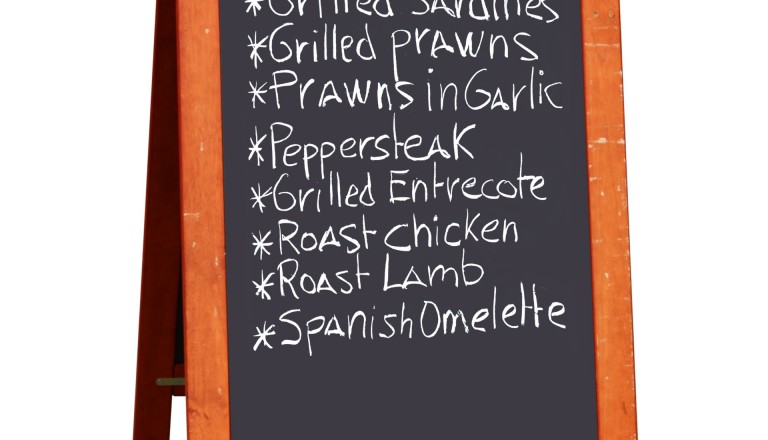 *Grilled Sardines
*Grilled prawns
*Prawns in Garlic
*Peppersteak
*Grilled Entrecote
*Roast chicken
*Roast Lamb
*Spanish Omelette